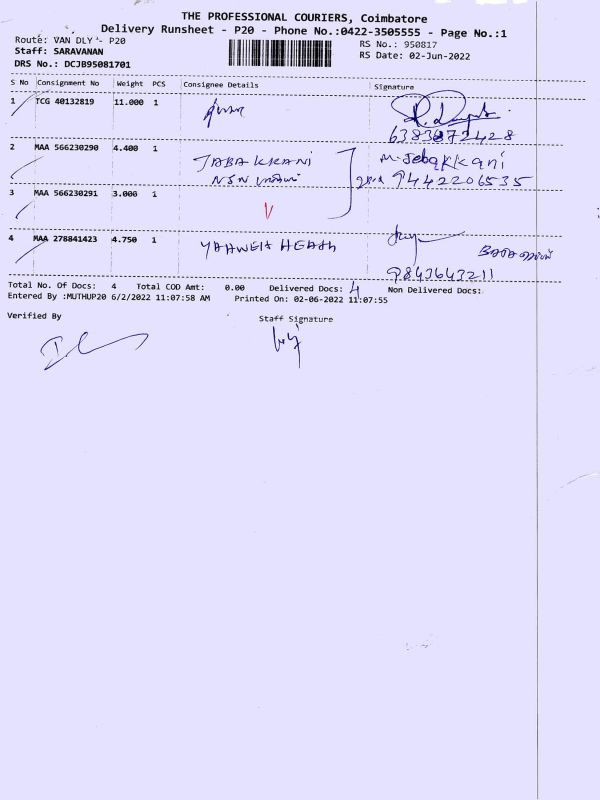 THE PROFESSIONAL COURIERS, Coimbatore
Delivery Runsheet - P20 - Phone No.:0422-3505555 - Page No.:1
Route: VAN DLY - P20
RS No.: 950817
Staff: SARAVANAN
RS Date: 02-Jun-2022
DRS No.: DCJB95081701
S No Consignment No Weight PCS Consignee Details Signature
1 TCG 40132819 11.000 1
6383072428
2 MAA 566230290 4.400 1 JABA KKANI M. Jebakkani
NSN 9442206535
3 MAA 566230291 3.000 1
4 MAA 278841423 4.750 1 YAHWEH HEATH
9843643211
Total No. Of Docs: 4 Total COD Amt: 0.00 Delivered Docs: 4 Non Delivered Docs:
Entered By :MUTHUP20 6/2/2022 11:07:58 AM Printed On: 02-06-2022 11:07:55
Verified By Staff Signature